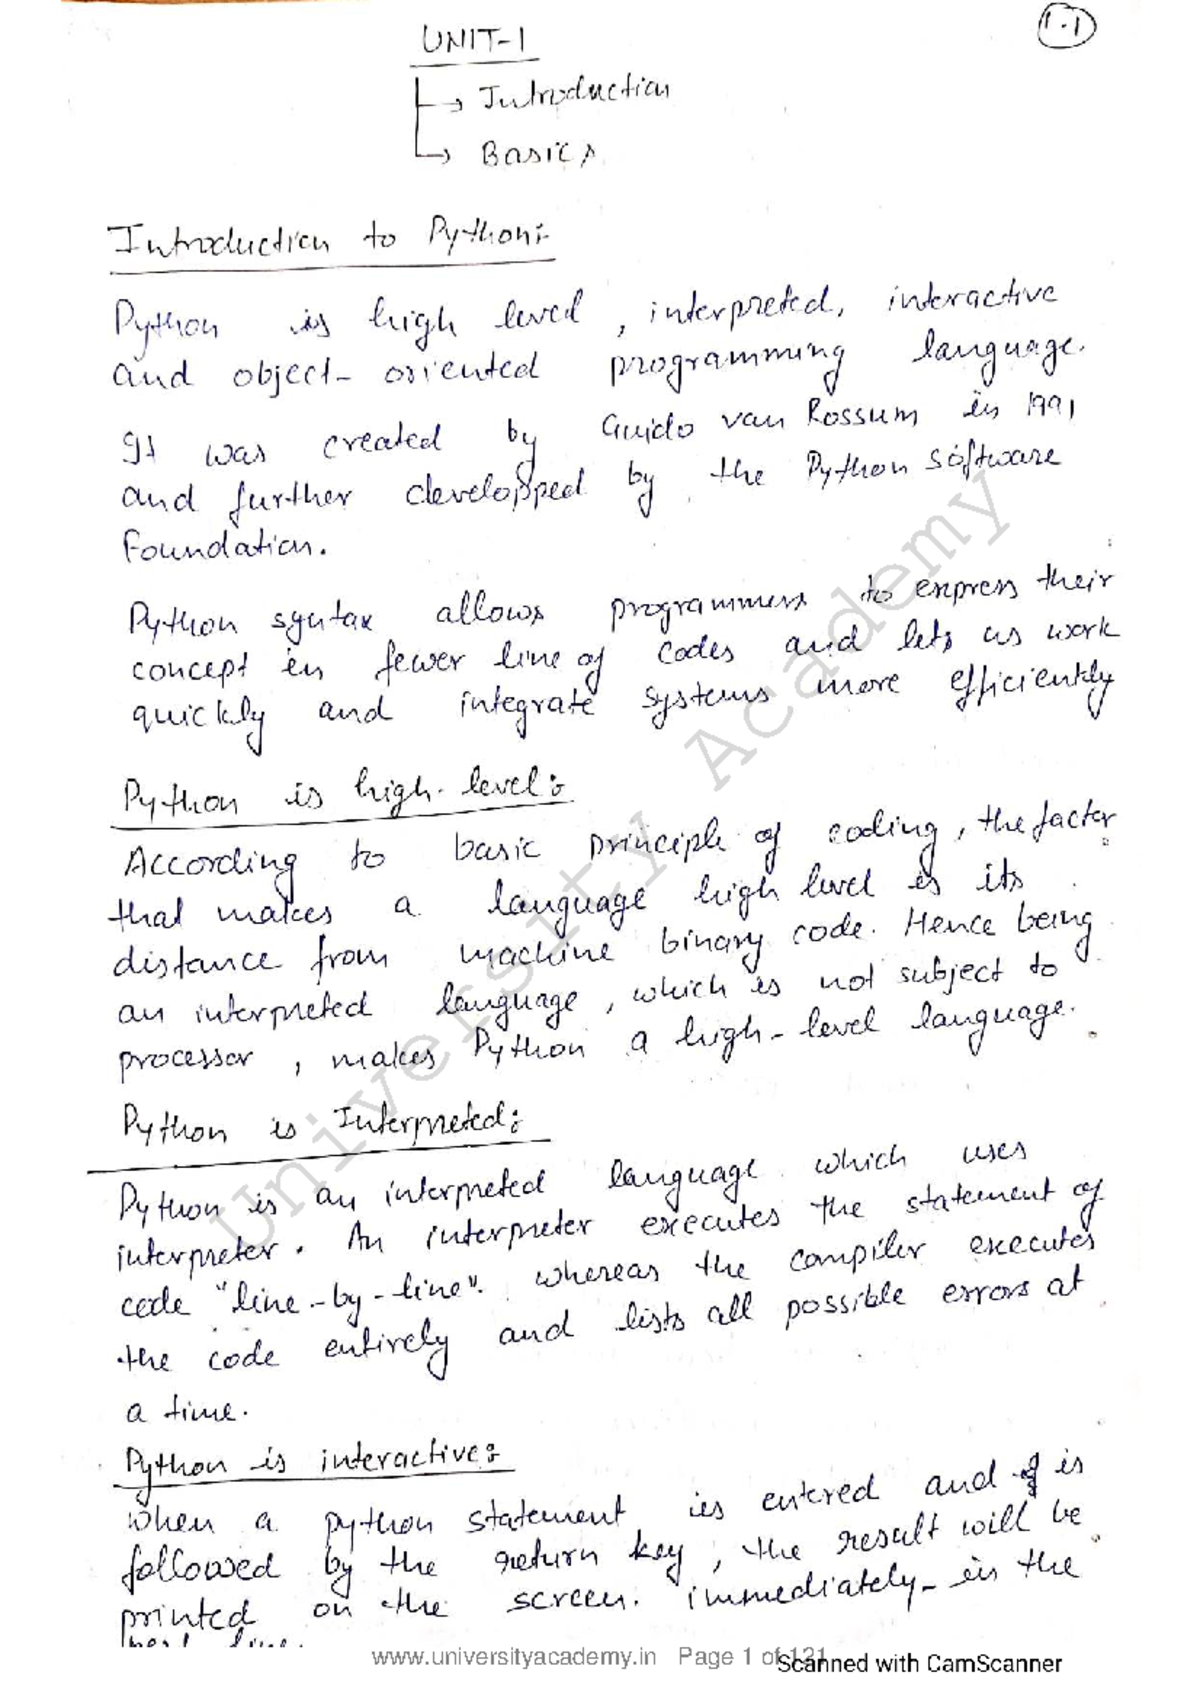 1.1
UNIT-1
→ Introduction
→ Basics
Introduction to Python:-
Python is high level, interpreted, interactive
and object-oriented programming language.
It was created by Guido van Rossum in 1991
and further developed by the Python Software
Foundation.
Python syntax allows programmers to express their
concept in fewer line of codes and lets us work
quickly and integrate systems more efficiently
Python is high-level:
According to basic principle of coding, the factor
that makes a language high level is its
distance from machine binary code. Hence being
an interpreted language, which is not subject to
processor, makes Python a high-level language.
Python is Interpreted:
Python is an interpreted language which uses
interpreter. An interpreter executes the statement of
code "line-by-line". whereas the compiler executes
the code entirely and lists all possible errors at
a time.
Python is interactive:
When a python statement is entered and is
followed by the return key, the result will be
printed on the screen. immediately- in the
next line.
University Academy
www.universityacademy.in Page 1 of 121
Scanned with CamScanner